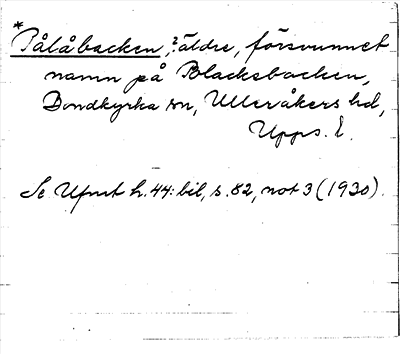 *Pålåbacken, ? äldre, försvunnet
namn på Blackebacken,
Bondkyrka sn, Ulleråkers hd,
Upps. l.
Se Ufmt h. 44: bil, s. 82, not 3 (1930).